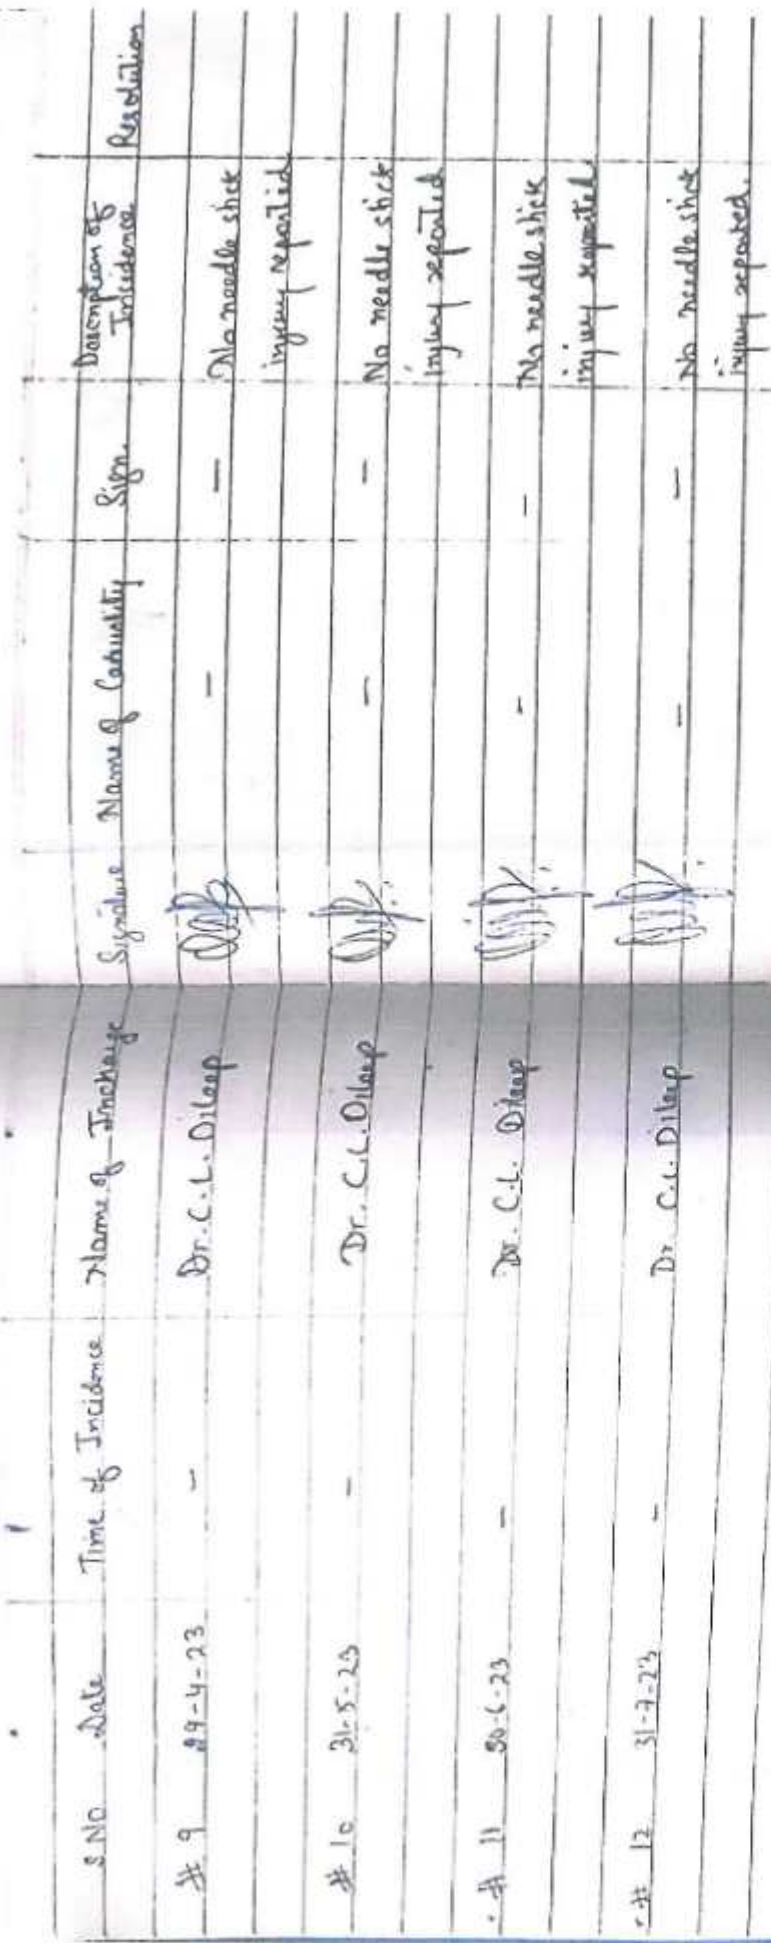 S NO Date Time of Incidence Name of Incharge Signature Name of Casuality Sign. Description of Incidence Resolution
# 9 29-4-23 - Dr. C. L. Dileep - - No needle stick
injury reported
# 10 31-5-23 - Dr. C. L. Dileep - - No needle stick
injury reported
# 11 30-6-23 - Dr. C. L. Dileep - - No needle stick
injury reported
# 12 31-7-23 - Dr. C. L. Dileep - - No needle stick
injury reported.